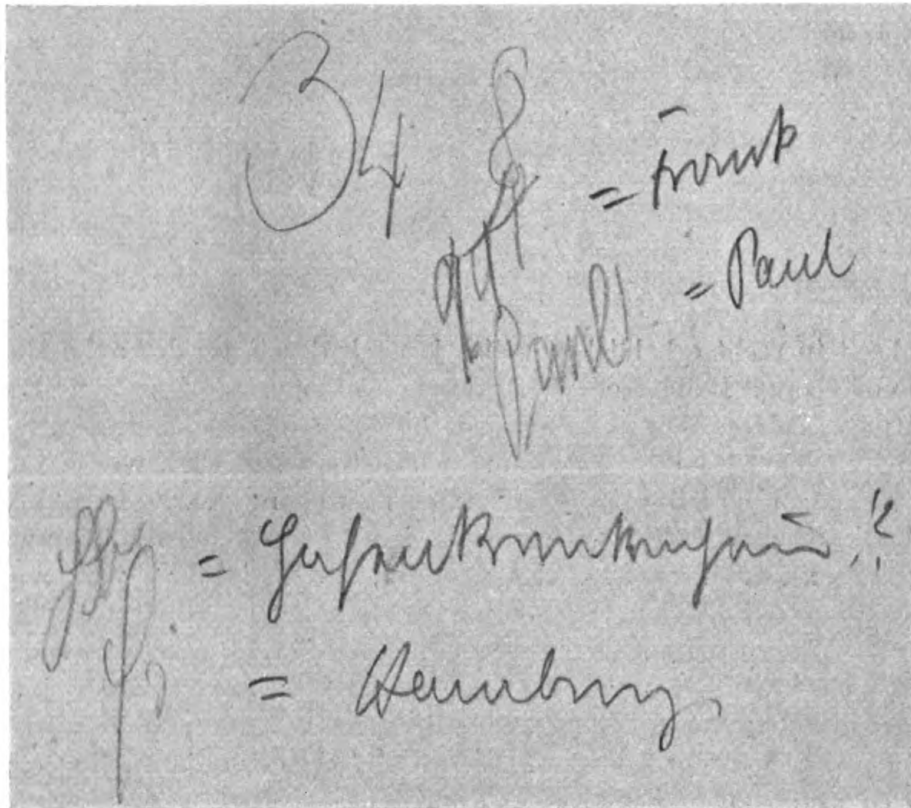 34 8
= Frank
Paul = Paul
= Hafenkrankenhaus!?
= Hamburg